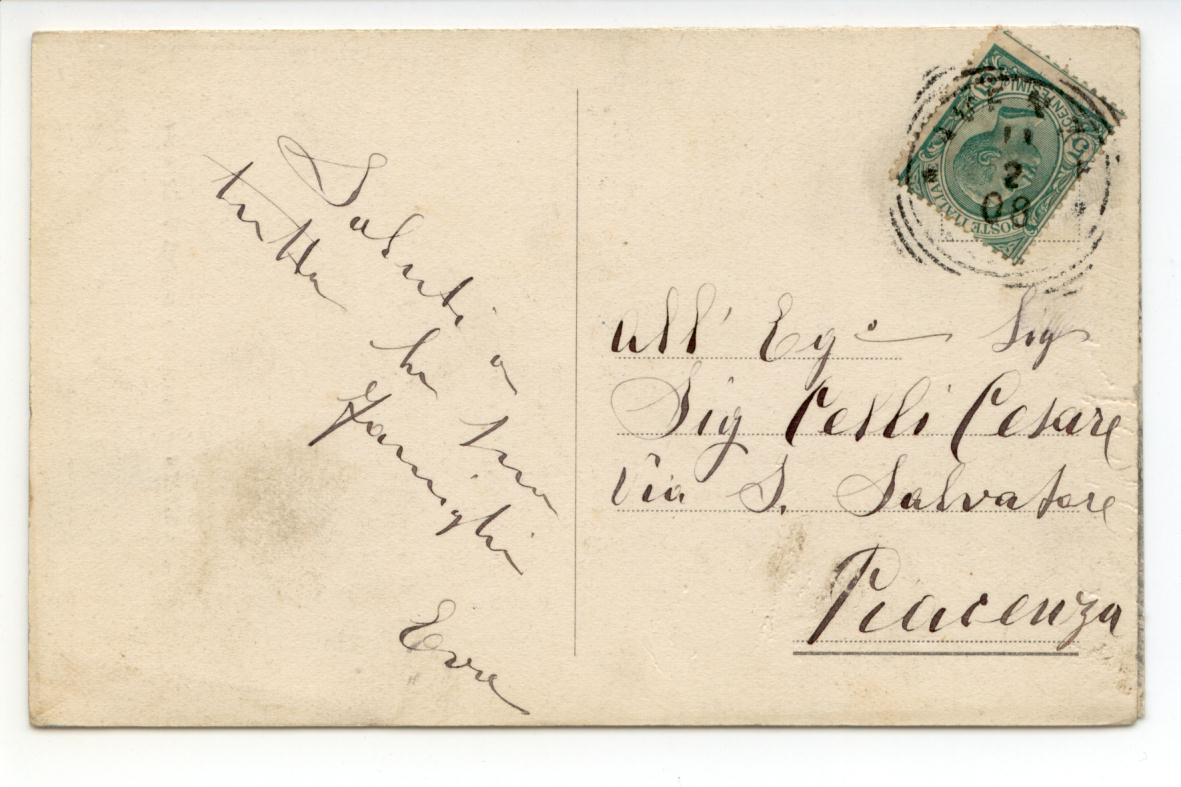 Saluti a
tutta la sua
famiglia
Eva
CENTESIMI
POSTE ITALIANE
11
2
08
All' Eg.o Sig
Sig Celli Cesare
Via S. Salvatore
Piacenza